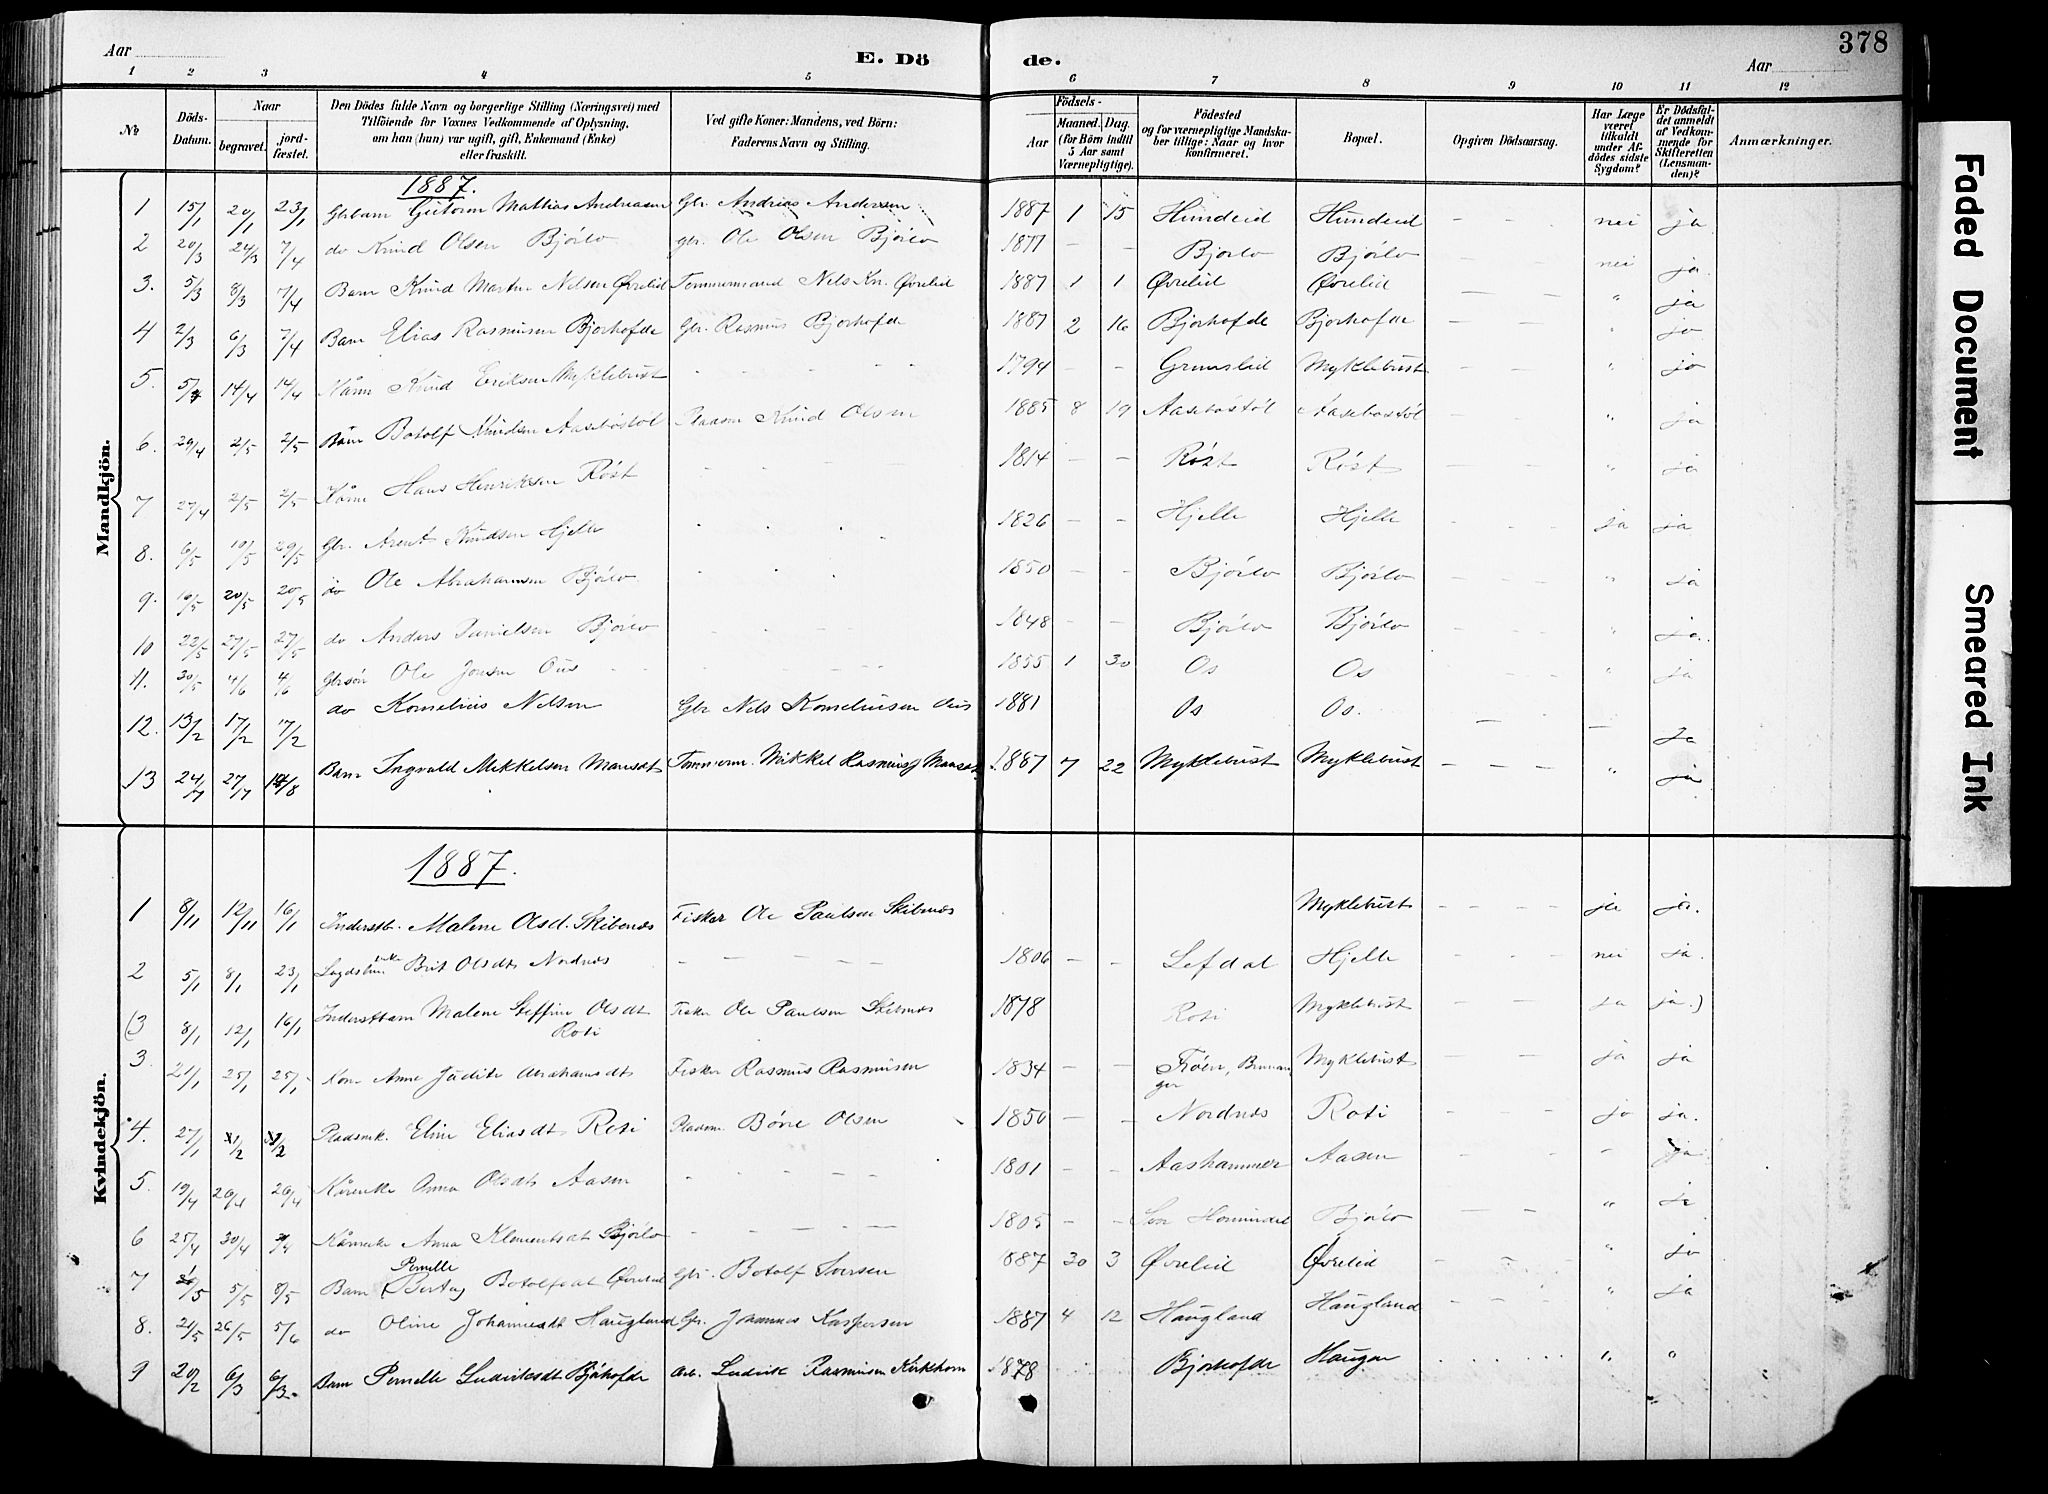 Aar
E. Dö
de.
Aar
378
1 2 3 4 5 6 7 8 9 10 11 12
No
Döds-Datum.
Naar
begravet.
jord-fæstet.
Den Dödes fulde Navn og borgerlige Stilling (Næringsvei) med
Tilföiende for Voxnes Vedkommende af Oplysning,
om han (hun) var ugift, gift, Enkemand (Enke)
eller fraskilt.
Ved gifte Koner: Mandens, ved Börn:
Faderens Navn og Stilling.
Födsels-
Aar
Maaned. Dag.
(for Börn indtil
5 Aar samt
Værnepligtige).
Födested
og for værnepligtige Mandska-
ber tillige: Naar og hvor
konfirmeret.
Bopæl.
Opgiven Dödsaarsag.
Har Læge
været
tilkaldt
under Af-
dödes sidste
Sygdom?
Er Dödsfal-
det anmeldt
af Vedkom-
mende for
Skifteretten
(Lensman-
den)?
Anmærkninger.
Mandkjön.
1887.
1 15/1 20/1 23/1 Guttorm Mattias Andreasen Gbr. Andreas Andersen 1887 1 15 Hundeid Hundeid - - nei ja
2 20/3 24/3 7/4 do Knud Olsen Bjørlo gbr. Ole Olsen Bjørlo 1877 - - Bjørlo Bjørlo nei ja.
3. 5/3 8/3 7/4 Barn Knud Martin Nilsen Øvrelid Tømmermand Nils Kn. Øvrelid 1887 1 1 Øvrelid Øvrelid - - - " ja
4 2/3 6/3 7/4 Barn Elias Rasmussen Bjørhofde Gbr. Rasmus Bjorhofde 1887 2 16 Bjorhofde Bjorhofde - - - " ja
5. 14/4 14/4 Knud Eriksen Myklebust - - - 1794 - - Grimslid Myklebust - - - " ja
6. 29/4 2/5 2/5 Barn Botolf Knudsen Aasebøstøl Pladsm Knud Olsen 1885 8 19 Aasebøstøl Aasebøstøl - - - " ja
7 27/4 2/5 2/5 Hans Henriksen Røst - - - 1814 - - Røst Røst - - - " ja
8. 6/5 10/5 29/5 Gbr. Arent Knudsen Hjelle - - - 1826 - - Hjelle Hjelle - - - ja ja
9. 16/5 20/5 20/5 do Ole Abrahamsen Bjørlo - - - 1850 - - Bjørlo Bjørlo - - - " ja
10 22/5 27/5 27/5 do Anders Danielsen Bjørlo - - - 1848 - - Bjørlo Bjørlo - - - " ja.
11. 30/5 4/6 4/6 Gbrsøn Ole Jonsen Ous - - - 1855 1 30 Os Os - - - " ja
12. 13/2 17/2 17/2 do Kornelius Nelsen Gbr Nels Korneliusen Ous 1881 Os Os. - - - Ja
13 24/7 27/7 14/8 Barn Ingvald Mikkelsen Tømmerm. Mikkel Rasmus 1887 7 22 Myklebust Myklebust - - - " ja
Kvindekjön.
1887.
1 8/11 12/11 16/1 Inderstb. Malene Olsd. Skibenæs Fisker Ole Paulsen Skibnæs Myklebust - - - - ja ja.
2 5/1 8/1 23/1 Brit Olsdt Nordnæs - - - - 1806 - - Lefdal Hjelle - - - nei ja.
(3 8/1 12/1 16/1 Inderstbarn Malene Steffine Olsdt Roti Fisker Ole Paulsen Skibnæs 1878 Roti Myklebust - - - ja ja.)
3 21/1 25/1 25/1 Kone Anne Judite Abrahamsdt Fisker Rasmus Rasmusen 1834 - - Frøen, Bremanger Myklebust - - ja ja
4. 27/1 Pladsmk. Eline Eliasdt Roti Pladsm. Børre Olsen 1850 - - Nordnæs Roti - - - ja ja.
5. 19/4 26/4 26/4 Kårenke Anna Olsdt Aasen - - - 1801 - - Aashammer Aasen - - - ja
6 25/4 30/4 Kårenke Anna Klementsdt Bjørlo - - - - 1805 - - Hornindal Bjørlo " ja
7 5/5 8/5 Barn Pernille (Bertha) Botolfsdt Øvrelid Gbr. Botolf Iversen 1887 30 3 Øvrelid Øvrelid - - - " ja
8. 21/5 26/5 5/6 do Oline Johannesdt Haugland Gbr. Johannes Kaspersen 1887 4 12 Haugland Haugland - - - " ja
9 20/2 6/3 6/3 Barn Pernelle Ludviksdt Bjørhofde Arb. Ludvik Rasmusen Kirkhorn 1878 Bjørhofde Haugen . . . . . " "
Faded Document
Smeared Ink